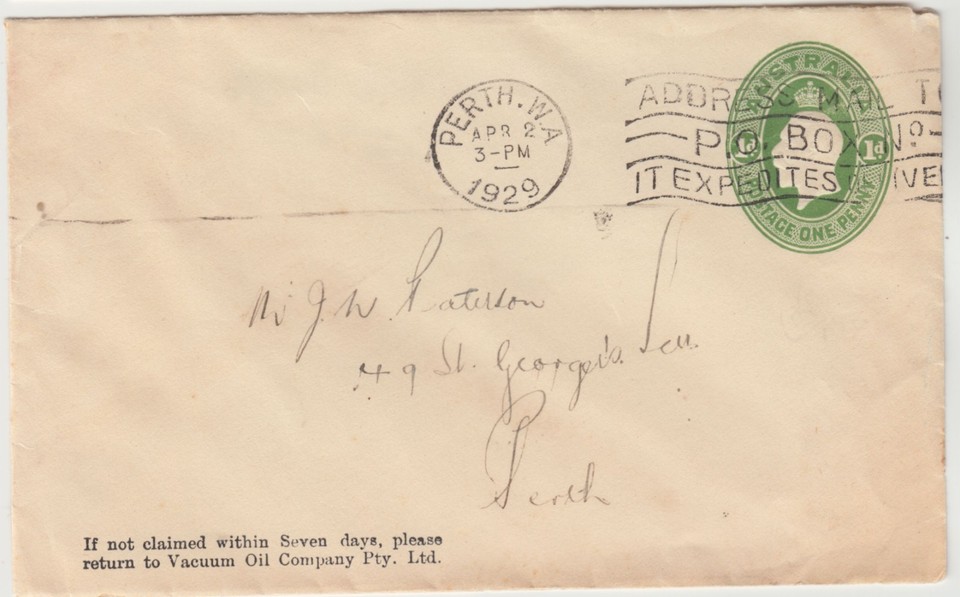 PERTH. W.A
APR 2
3-PM
1929
ADDRESS MAIL TO
P.O. BOX No
IT EXPEDITES IVE
AUSTRALIA
1d 1d
POSTAGE ONE PENNY
Mr J. W. Paterson
49 St. George's Terr.
Perth
If not claimed within Seven days, please
return to Vacuum Oil Company Pty. Ltd.